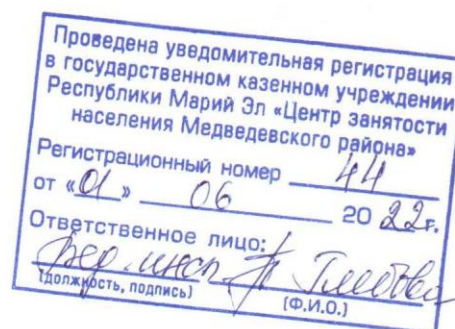 Проведена уведомительная регистрация
в государственном казенном учреждении
Республики Марий Эл «Центр занятости
населения Медведевского района»
Регистрационный номер 44
от «01» 06 2022г.
Ответственное лицо:
вед. инсп
(должность, подпись) (Ф.И.О.)